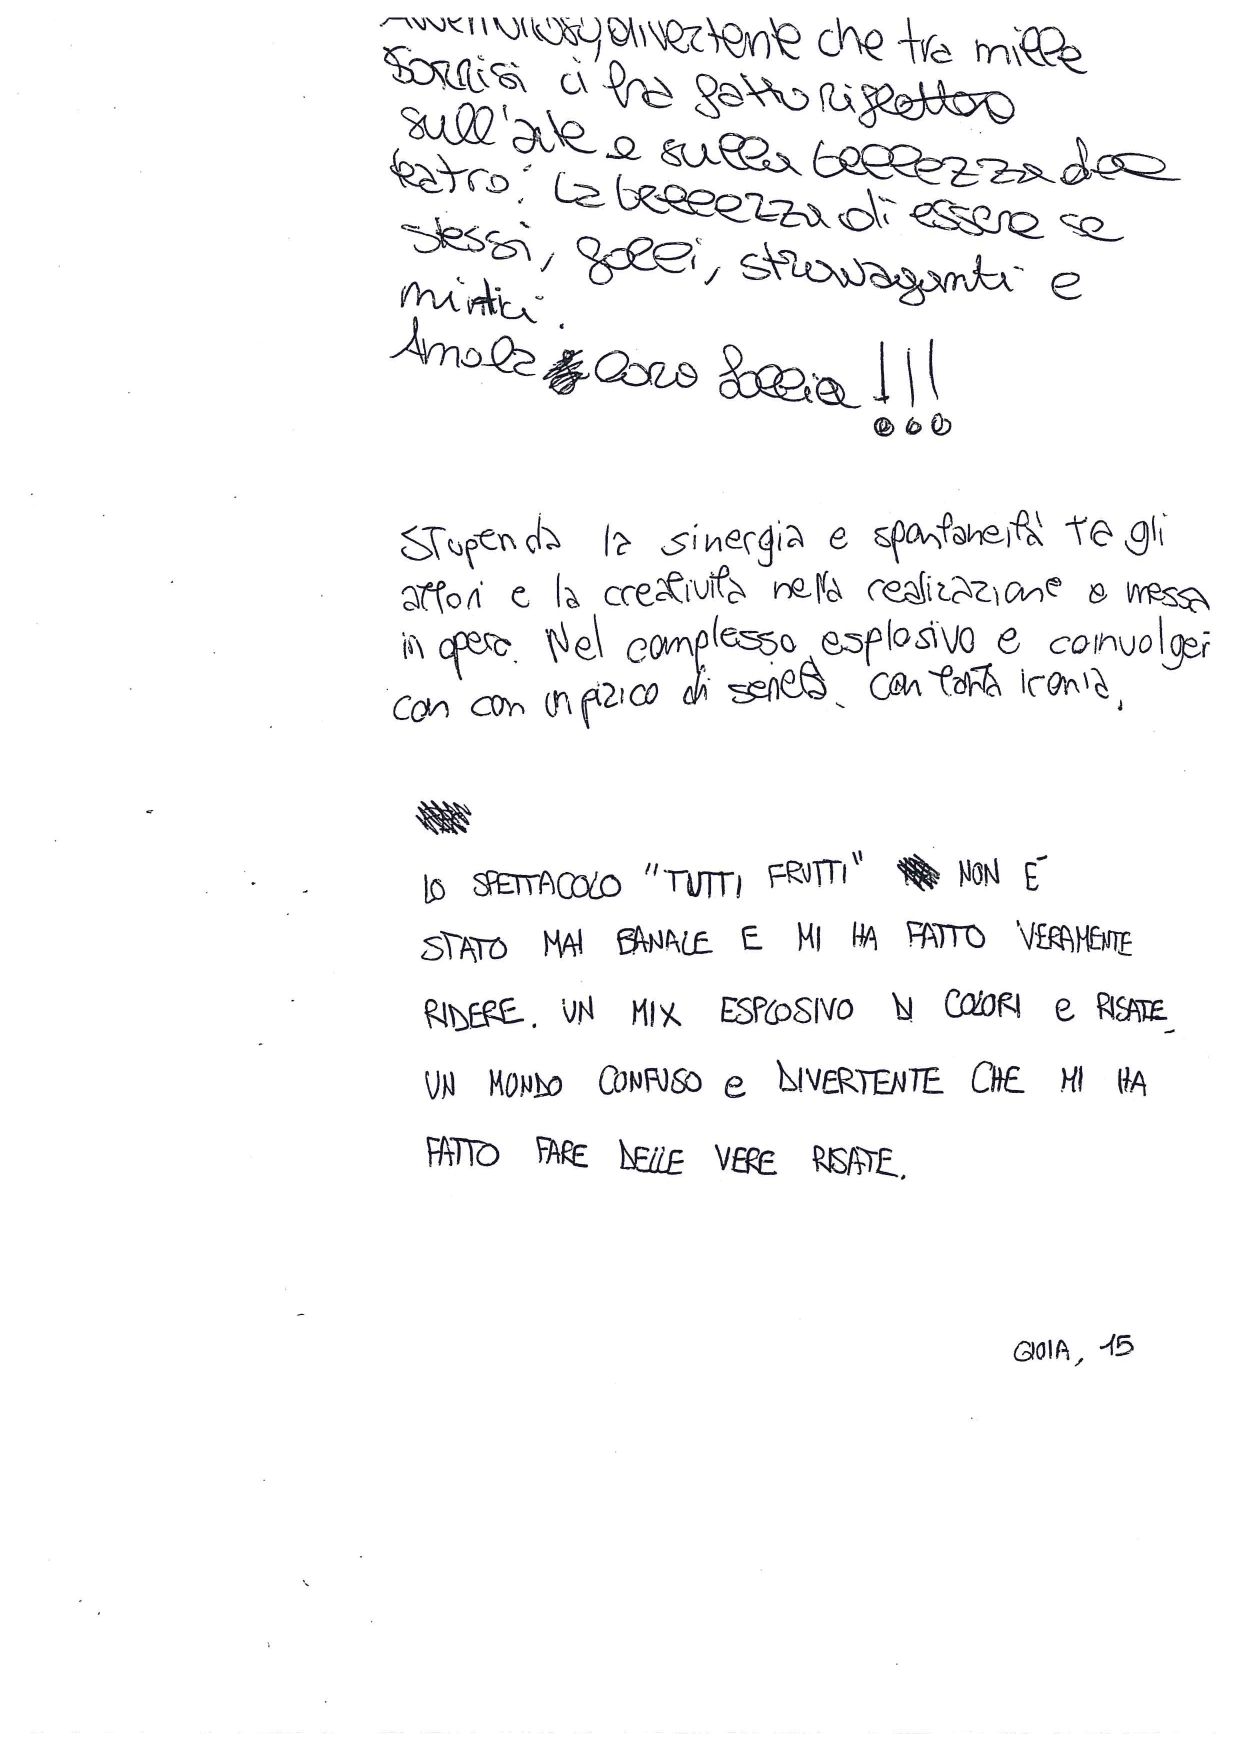 divertente che tra mille
sorrisi ci ha fatto riflettere
sull'arte e sulla bellezza del
teatro. La bellezza di essere se
stessi, folli, stravaganti e
mimici.
Amo la loro follia !!!
STupenda la sinergia e spontaneità tra gli
attori e la creatività nella realizzazione e messa
in opera. Nel complesso esplosivo e coinvolgen
con con un pizico di serietà. con tanta ironia.
LO SPETTACOLO "TUTTI FRUTTI" NON È
STATO MAI BANALE E MI HA FATTO VERAMENTE
RIDERE. UN MIX ESPLOSIVO DI COLORI e RISATE.
UN MONDO CONFUSO e DIVERTENTE CHE MI HA
FATTO FARE DELLE VERE RISATE.
GIOIA, 15